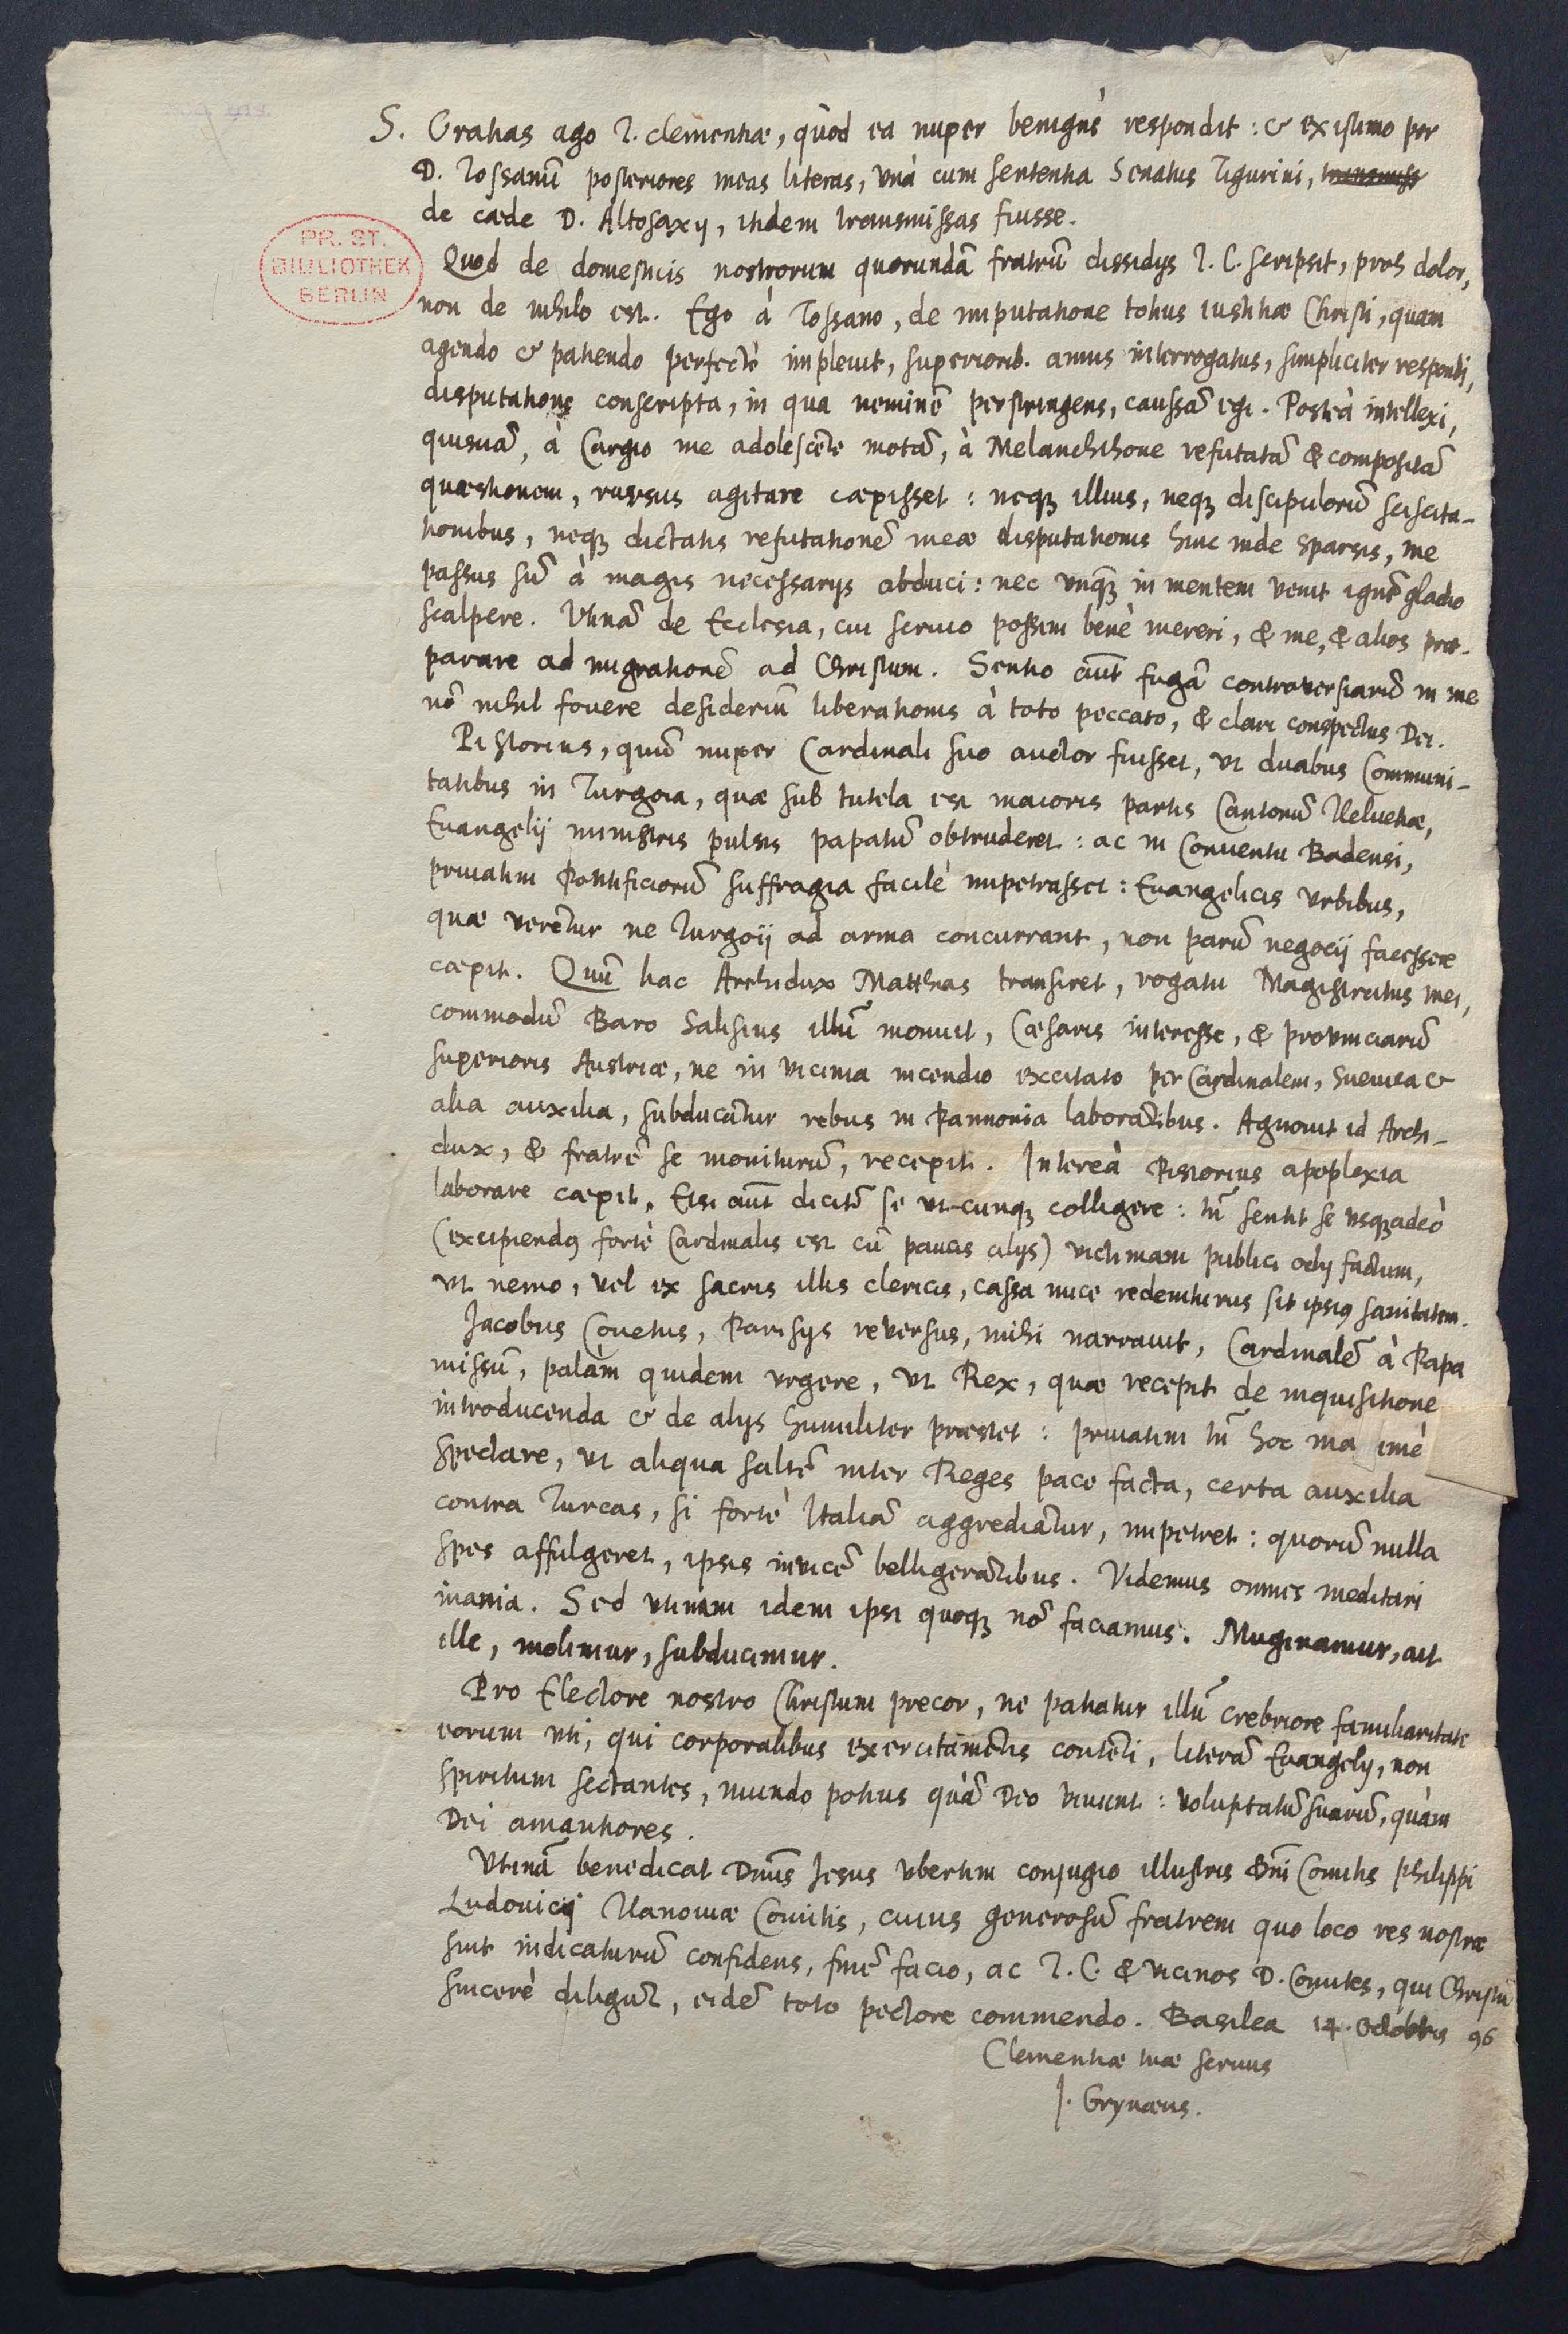 S. Gratias ago T. clementiæ, quòd ea nuper benignè respondit: & existimo per
D. Tossanũ posteriores meas literas, vnà cum sententia Senatus Tigurini,
de cæde D. Altosaxij, itidem transmissas fuisse.
PR. ST.
BIBLIOTHEK
BERLIN
Quod de domesticis nostrorum quorundã fratrũ dissidijs T. C. scripsit, proh dolor,
non de nihilo est. Ego à Tossano, de imputatione totius iustitiæ Christi, quam
agendo & patiendo perfectè impleuit, superiorib. annis interrogatus, simpliciter respondi,
disputatione conscripta, in qua neminẽ perstringens, caussã egi. Posteà intellexi,
quisnã, à Cargio me adolescẽte motã, à Melanchthone refutatã & compositã
quæstionem, rursus agitare cœpisset: neqꝫ illius, neqꝫ discipulorũ sciscita-
tionibus, neqꝫ dictatis refutationẽ meæ disputationis hinc inde sparsis, me
passus sũ à magis necessarijs abduci: nec vnqꝫ in mentem venit ignẽ gladio
scalpere. Vtinã de Ecclesia, cui seruio possim benè mereri, & me, & alios præ-
parare ad migrationẽ ad Christum. Sentio aũt fugã controuersiarũ in me
nõ nihil fouere desideriũ liberationis à toto peccato, & clari conspectus Dei.
Pistorius, quũ nuper Cardinali suo auctor fuisset, vt duabus Communi-
tatibus in Turgoia, quæ sub tutela est maioris partis Cantonũ Heluetiæ,
Euangelij ministris pulsis papatũ obtruderet: ac in Conventu Badensi,
priuatim Pontificiorũ suffragia facilè impetrasset: Euangelicis vrbibus,
quæ verẽtur ne Turgoij ad arma concurrant, non parũ negocij facessere
cœpit. Quũ hac Archidux Matthias transiret, rogatu Magistratus mei,
commodũ Baro Salisius illũ monuit, Cæsaris interesse, & prouinciarũ
superioris Austriæ, ne in vicinia incendio excitato per Cardinalem, Sueuica &
alia auxilia, subducãtur rebus in Pannonia laborãtibus. Agnouit id Archi-
dux, & fratrẽ se moniturũ, recepit. Intereà Pistorius apoplexia
laborare cœpit. Etsi aũt dicitr̃ se vt-cunqꝫ colligere: tñ sentit se vsqꝫadeò
(excipiendꝰ fortè Cardinalis est cũ paucis alijs) victimam publici odij factum,
vt nemo, vel ex sacris illis clericis, cassa nuce redempturus sit ipsiꝰ sanitatem.
Jacobus Covetus, Parisijs reversus, mihi narrauit, Cardinalẽ à Papa
missũ, palàm quidem vrgere, vt Rex, quæ recepit de inquisitione
introducenda & de alijs humiliter præstet: priuatim tñ hoc ma imè
spectare, vt aliqua saltẽ inter Reges pace facta, certa auxilia
contra Turcas, si fortè Italiã aggrediãtur, impetret: quorũ nulla
spes affulgeret, ipsis invicẽ belligerãtibus. Videmus omnes meditari
inania. Sed vtinam idem ipsi quoqꝫ nõ faciamus. Muginamur, ait
ille, molimur, subducimur.
Pro Electore nostro Christum precor, ne patiatur illũ crebriore familiaritate
eorum vti, qui corporalibus exercitamẽtis contẽti, literã Euangelij, non
spiritum sectantes, mundo potius quàm Deo viuunt: voluptatũ suarũ, quàm
Dei amantiores.
Vtinã benedicat Dñus Jesus vbertim conjugio illustris Dñi Comitis Philippi
Ludouici Hanouiæ Comitis, cuius generosũ fratrem quo loco res nostræ
sint indicaturũ confidens, finẽ facio, ac T. C. & vicinos D. Comites, qui Christũ
sincerè diligũt, eidẽ toto pectore commendo. Basilea 14. Octobris 96
Clementiæ tuæ seruus
J. Grynæus.